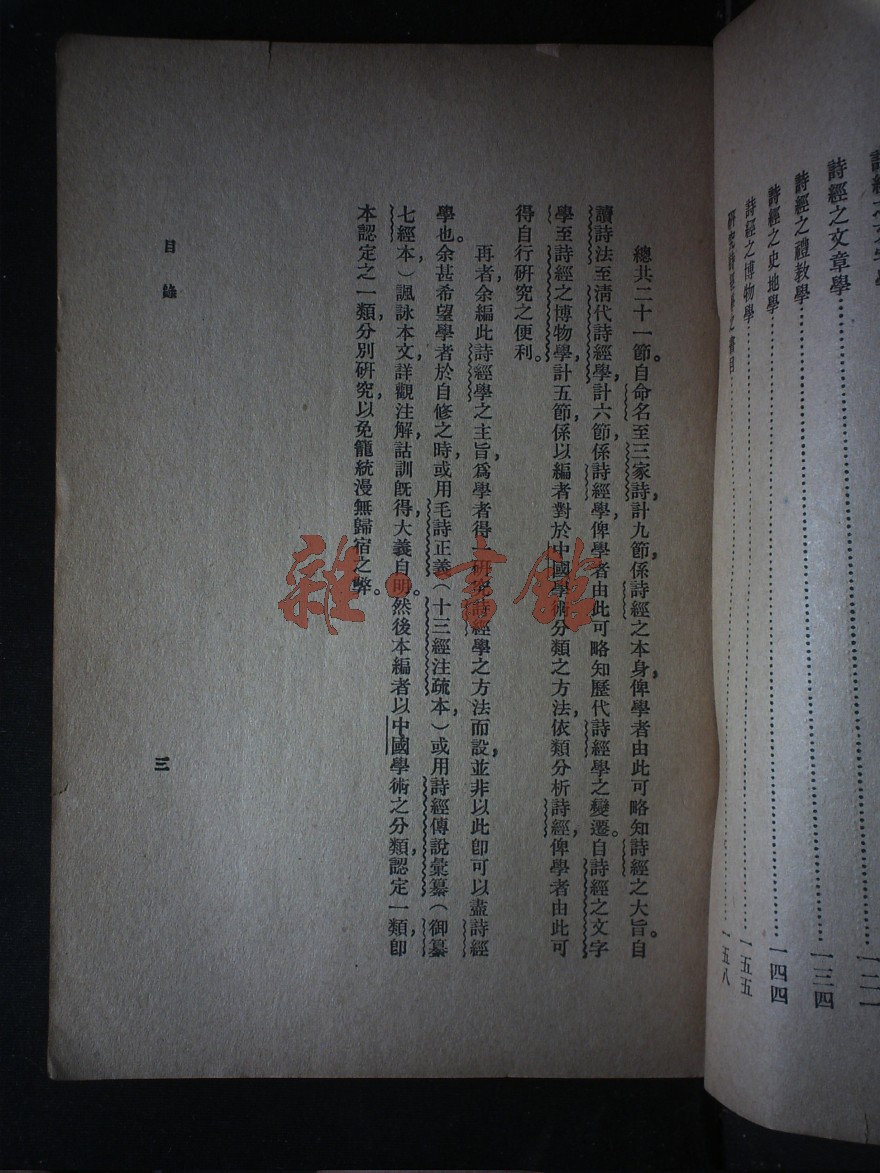 詩經之文字學……一二一
詩經之文章學……一三四
詩經之禮教學……一四四
詩經之史地學……一五五
詩經之博物學……一五八
研究詩經學之書目
總共二十一節。自命名至三家詩,計九節,係詩經之本身,俾學者由此可略知詩經之大旨。自
讀詩法至清代詩經學,計六節,係詩經學,俾學者由此可略知歷代詩經學之變遷。自詩經之文字
學至詩經之博物學,計五節,係以編者對於中國學術分類之方法,依類分析詩經,俾學者由此可
得自行研究之便利。
再者,余編此詩經學之主旨,爲學者得一研究詩經學之方法而設,並非以此卽可以盡詩經
學也。余甚希望學者於自修之時,或用毛詩正義(十三經注疏本)或用詩經傳說彙纂(御纂
七經本)諷詠本文,詳觀注解,詁訓旣得,大義自明。然後本編者以中國學術之分類,認定一類,卽
本認定之一類,分別研究,以免籠統漫無歸宿之弊。
目錄
三
雜·書館